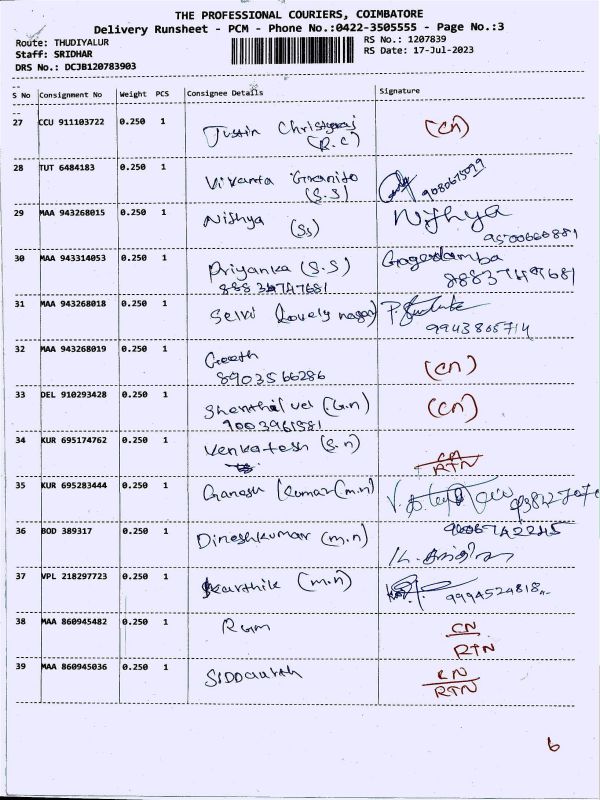 THE PROFESSIONAL COURIERS, COIMBATORE
Delivery Runsheet - PCM - Phone No.:0422-3505555 - Page No.:3
Route: THUDIYALUR RS No.: 1207839
Staff: SRIDHAR RS Date: 17-Jul-2023
DRS No.: DCJB120783903
S No Consignment No Weight PCS Consignee Details Signature
27 CCU 911103722 0.250 1 Justin (R.C) (CN)
28 TUT 6484183 0.250 1 Vivanta (S.S)
29 MAA 943268015 0.250 1 Nithya (SS) Nithya
9500660881
30 MAA 943314053 0.250 1 Priyanka (S.S)
8883747681
31 MAA 943268018 0.250 1 Selvi Lovely nagar
9943865714
32 MAA 943268019 0.250 1 (CN)
8903566286
33 DEL 910293428 0.250 1 (G.n) (CN)
9003961581
34 KUR 695174762 0.250 1 Venkatesh (S.n) RTN
35 KUR 695283444 0.250 1 Ganesh Kumar (m.n)
36 BOD 389317 0.250 1 Dineshkumar (m.n)
37 VPL 218297723 0.250 1 Karthik (m.n) 9994524818
38 MAA 860945482 0.250 1 Ram CN
RTN
39 MAA 860945036 0.250 1 SIDDaurth CN
RTN
6